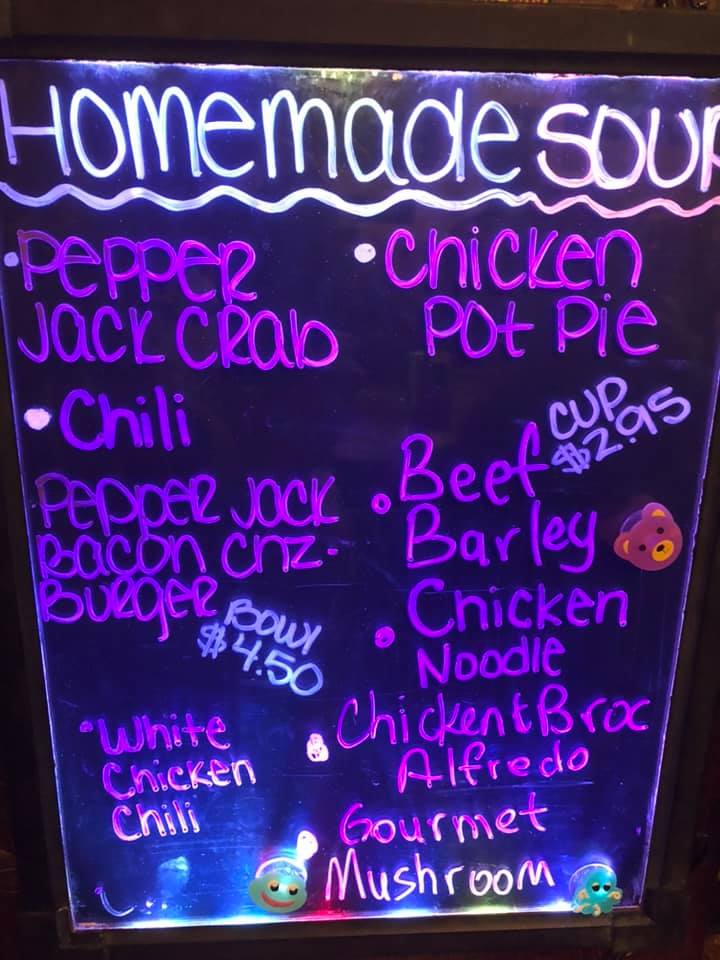 Homemade SOUP
• Pepper
Jack Crab
• Chili
Pepper Jack
Bacon Chz-
Burger
Bowl
$4.50
• White
Chicken
Chili
• Chicken
Pot Pie
Cup
$2.95
• Beef
Barley
• Chicken
Noodle
• Chicken & Broc
Alfredo
• Gourmet
Mushroom